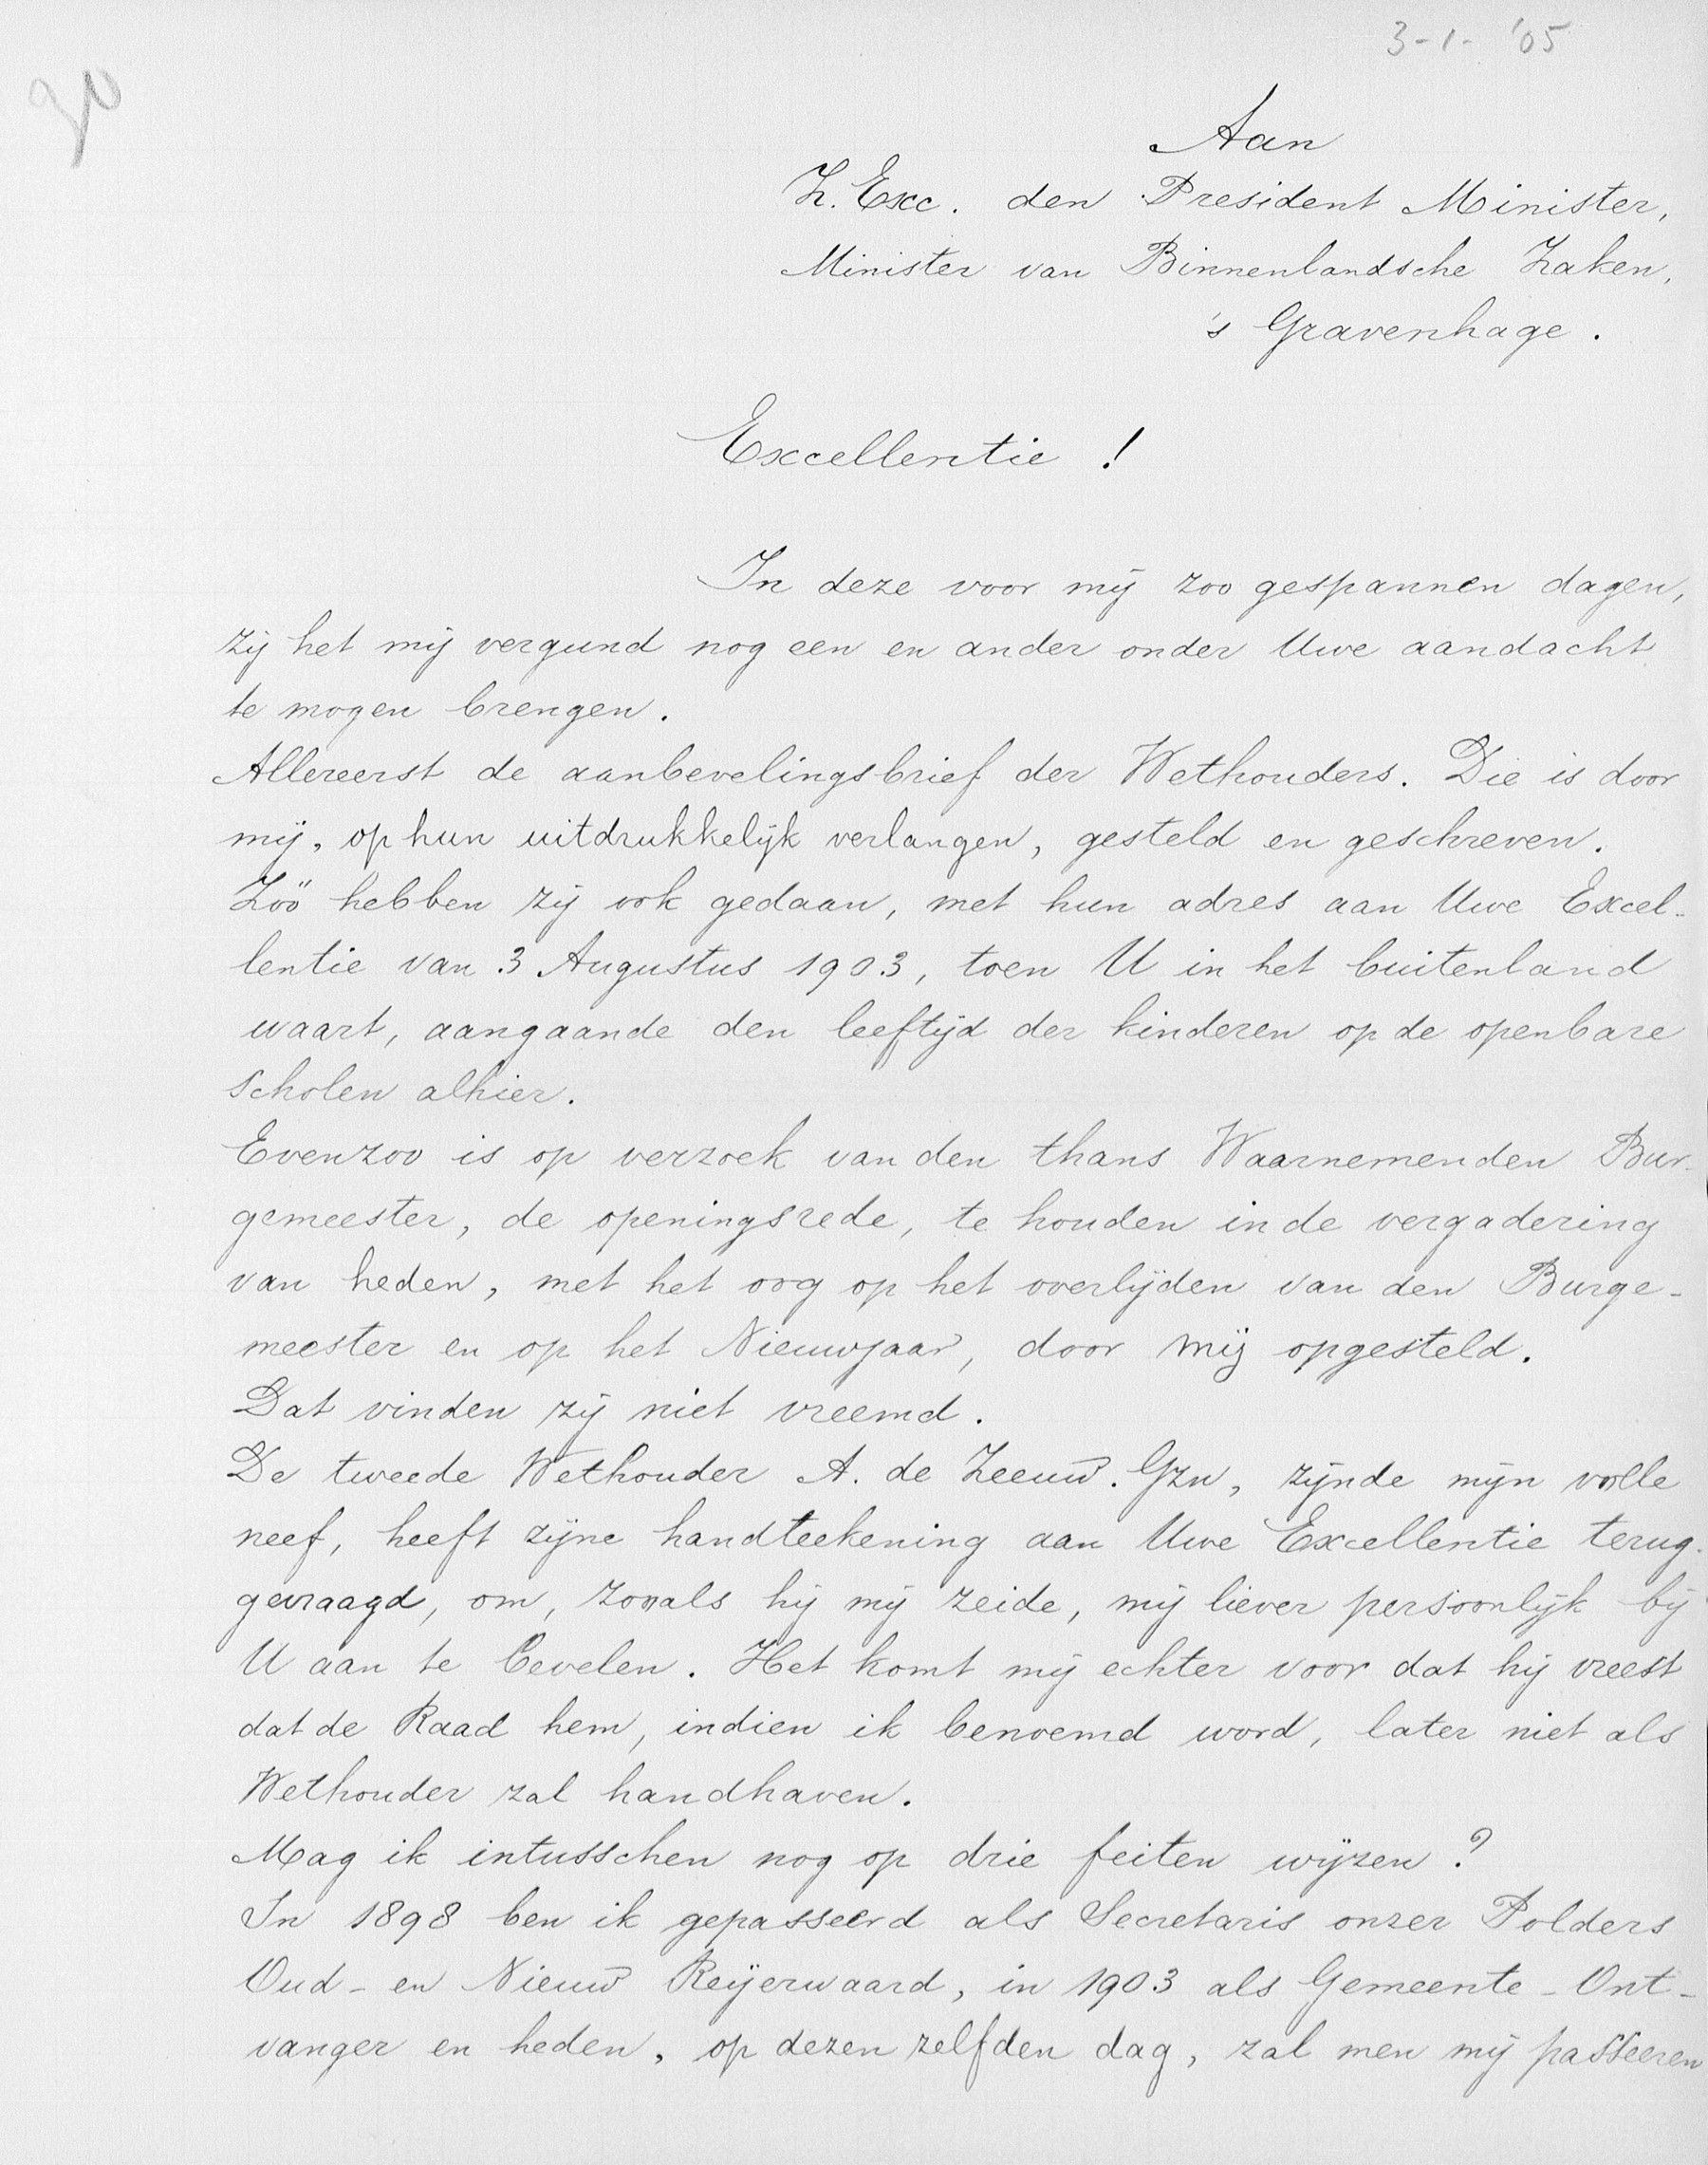 3-1- '05
Aan
Z. Exc. den President Minister,
Minister van Binnenlandsche Zaken,
's Gravenhage.
Excellentie !
In deze voor mij zoo gespannen dagen,
zij het mij vergund nog een en ander onder Uwe aandacht
te mogen brengen.
Allereerst de aanbevelingsbrief der Wethouders. Die is door
mij, op hun uitdrukkelijk verlangen, gesteld en geschreven.
Zöö hebben zij ook gedaan, met hun adres aan Uwe Excel-
lentie van 3 Augustus 1903, toen U in het buitenland
waart, aangaande den leeftijd der kinderen op de openbare
scholen alhier.
Evenzoo is op verzoek van den thans Waarnemenden Bur-
gemeester, de openingsrede, te houden in de vergadering
van heden, met het oog op het overlijden van den Burge-
meester en op het Nieuwjaar, door mij opgesteld.
Dat vinden zij niet vreemd.
De tweede Wethouder A. de Zeeuw. Gzn, zijnde mijn volle
neef, heeft zijne handteekening aan Uwe Excellentie terug-
gevraagd, om, zooals hij mij zeide, mij liever persoonlijk bij
U aan te bevelen. Het komt mij echter voor dat hij vreest
dat de Raad hem, indien ik benoemd word, later niet als
Wethouder zal handhaven.
Mag ik intusschen nog op drie feiten wijzen?
In 1898 ben ik gepasseerd als Secretaris onzer Polders
Oud- en Nieuw Reijerwaard, in 1903 als Gemeente-Ont-
vanger en heden, op dezen zelfden dag, zal men mij passeeren